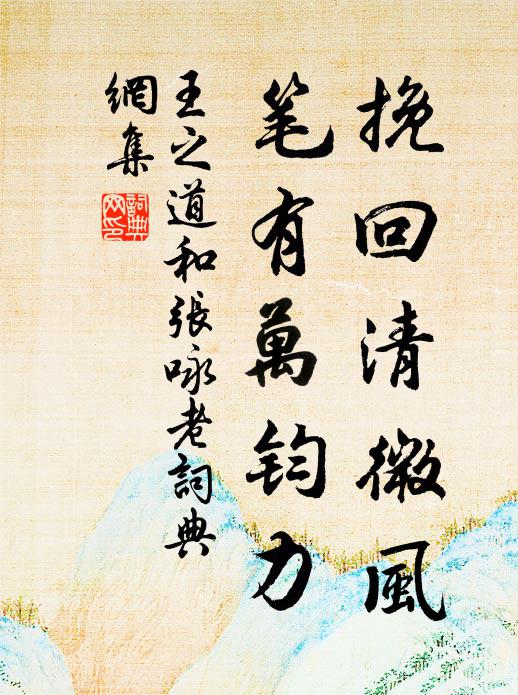 挽回清微風
笔有萬钧力
王之道和張咏老詞典
網集
詞典
网印